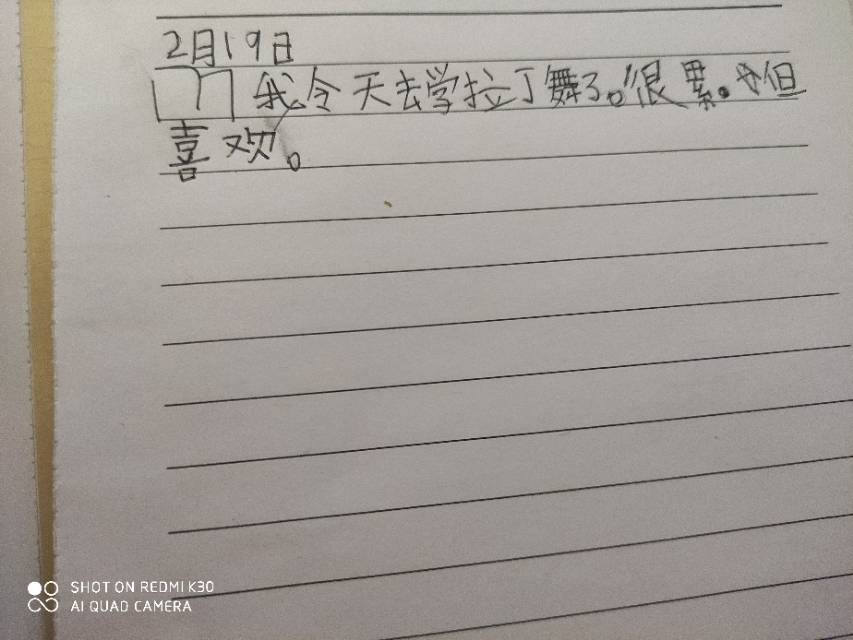 2月19日
我今天去学拉丁舞了。很累。但
喜欢。
SHOT ON REDMI K30
AI QUAD CAMERA